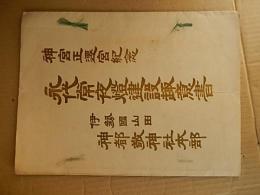 神宮正遷宮紀念
永代常夜燈建設趣意書
伊勢國山田
神都敬神社本部